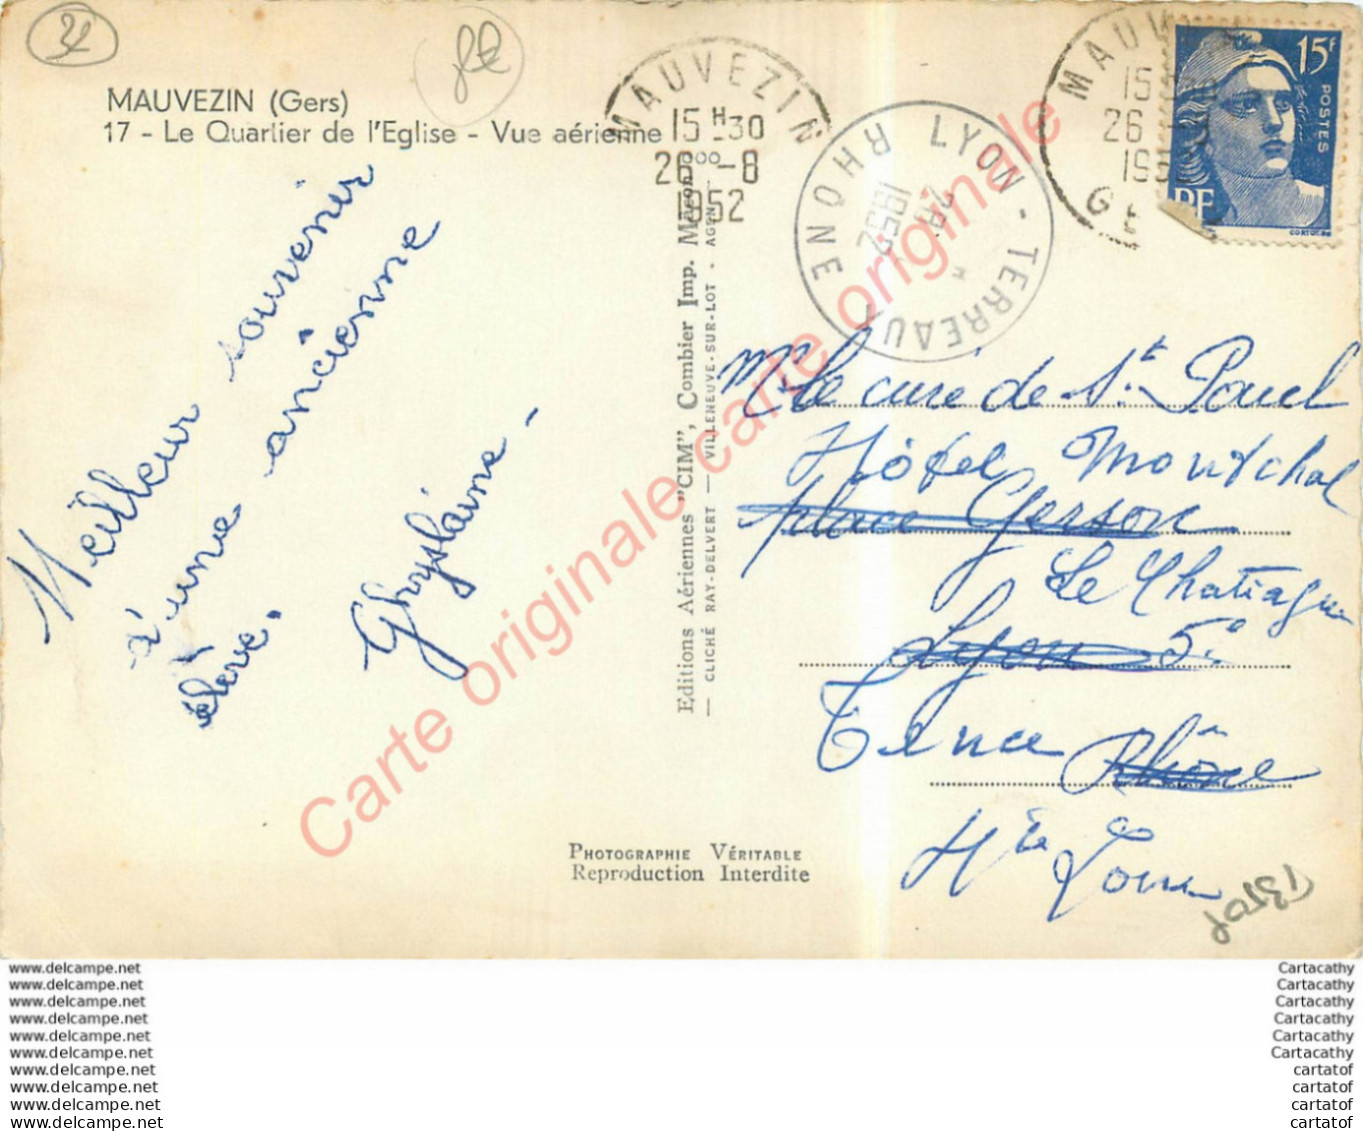 MAUVEZIN (Gers)
17 - Le Quartier de l'Eglise - Vue aérienne
Meilleur souvenir
d'une ancienne
élève.
Ghyslaine -
MAUVEZIN
15H30
26 -8
1952
RHONE LYON - TERREAUX
28
1952
MAUV
15
26
195
GE
15F
POSTES
RF
Editions Aériennes "CIM", Combier Imp. Macon
— CLICHÉ RAY-DELVERT — VILLENEUVE-SUR-LOT - AGEN
Mr le curé de St. Paul
Hôtel Montchal
place Gerson
Le
Lyon 5e
Tence Rhône
Hte Loire
PHOTOGRAPHIE VÉRITABLE
Reproduction Interdite
Carte originale carte originale
www.delcampe.net
www.delcampe.net
www.delcampe.net
www.delcampe.net
www.delcampe.net
www.delcampe.net
www.delcampe.net
www.delcampe.net
www.delcampe.net
www.delcampe.net
Cartacathy
Cartacathy
Cartacathy
Cartacathy
Cartacathy
Cartacathy
cartatof
cartatof
cartatof
cartatof